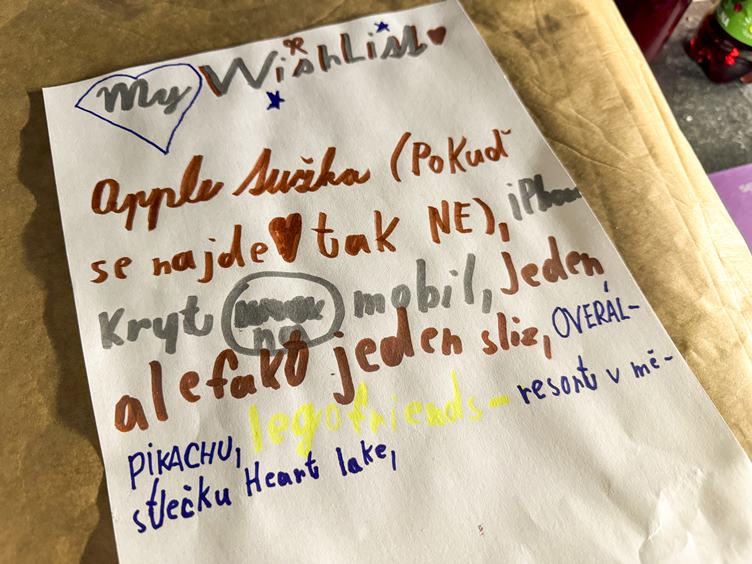 My WishList
Apple Tužka (Pokuď
se najde tak NE), iPhone
Kryt na mobil, Jeden
alefakt jeden sliz, OVERÁL-
PIKACHU, legofriends- resort v mě-
stečku Heart lake,